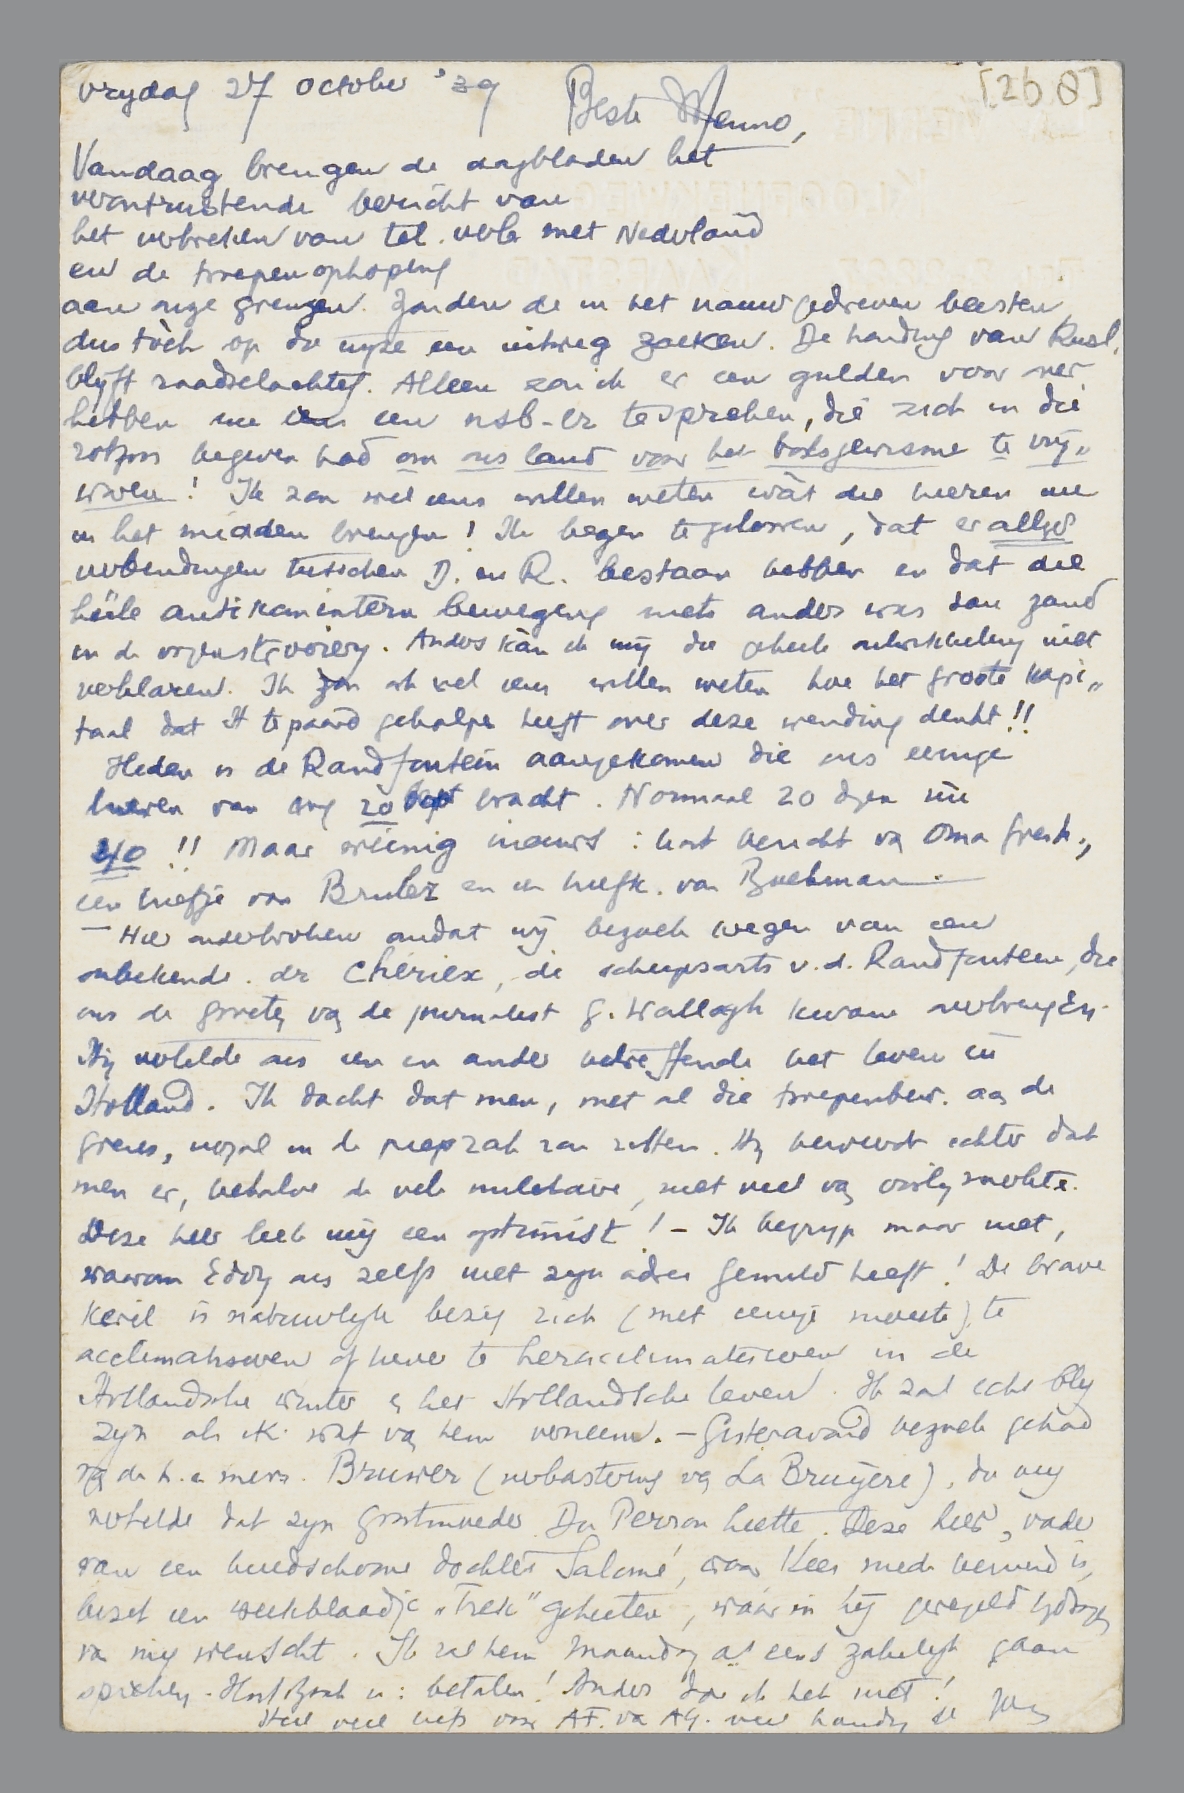 vrydag 27 october '39 Beste Menno, [268]
Vandaag brengen de dagbladen het
verontrustende bericht van
het verbreken van tel. verb. met Nederland
en de troepenophoping
aan onze grenzen. Zouden de in het nauw gedreven beesten
dus tòch op die wyze een uitweg zoeken. De houding van Rusl.
blyft raadselachtig. Alleen zou ik er een gulden voor over
hebben nu een nsb-er te spreken, die zich in die
rotzooi begeven had om ons land voor het bolsjewisme te vry„
waren! Ik zou wel eens willen weten wàt die heeren nu
in het midden brengen! Ik begin te gelooven, dat er altyd
verbindingen tusschen D. en R. bestaan hebben en dat die
héele antikomintern beweging niets anders was dan zand
in de oogenstrooiery. Anders kàn ik my die geheele ontwikkeling niet
verklaren. Ik zou ook wel eens willen weten hoe het groote kapi„
taal dat H te paard geholpen heeft over deze wending denkt!!
Heden is de Randfontein aangekomen die ons eenige
brieven van 20 bracht. Normaal 20 dgn nu
40!! Maar weinig nieuws: kort bericht vq Oma Gresh.,
een briefje van Brulez en een briefk. van Buckman.
— Hier onderbroken omdat wy bezoek kregen van een
onbekende. dr Chèriex, de scheepsarts v.d. Randfontein, die
ons de groeten vq de journalist G. Wallagh kwam overbrengen.
Hy vertelde ons een en ander betreffende het leven in
Holland. Ik dacht dat men, met al die troepenbew. aq de
grens, nogal in de piepzak zou zitten. Hy beweerde echter dat
men er, behalve de vele militairen, niet veel vq oorlog merkte.
Deze heer leek my een optimist! – Ik begryp maar niet,
waarom Eddy ons zelfs niet zyn adres gemeld heeft! De brave
kerel is natuurlyk bezig zich (met eenige moeite) te
acclimatiseeren of liever te heracclimatiseeren in de
Hollandsche winter & het Hollandsche leven. Ik zal echt bly
zyn als ik wat vq hem verneem. – Gisteravond bezoek gehad
vq de h. en mevr. Bruwer (verbastering vq La Bruyère), die my
vertelde dat zyn grootmoeder Du Perron heette. Deze heer, vader
van een beeldschoone dochter Salomé, waar Kees mede bevriend is,
bezit een weekblaadje „Trek" geheeten, waarin hij geregeld bydragen
van my wenscht. Ik zal hem Maandag as eens zakelyk gaan
spreken. Hoofdzaak is: betalen! Anders doe ik het niet!
Heel veel liefs voor AF. va AG. veel handen de Jan